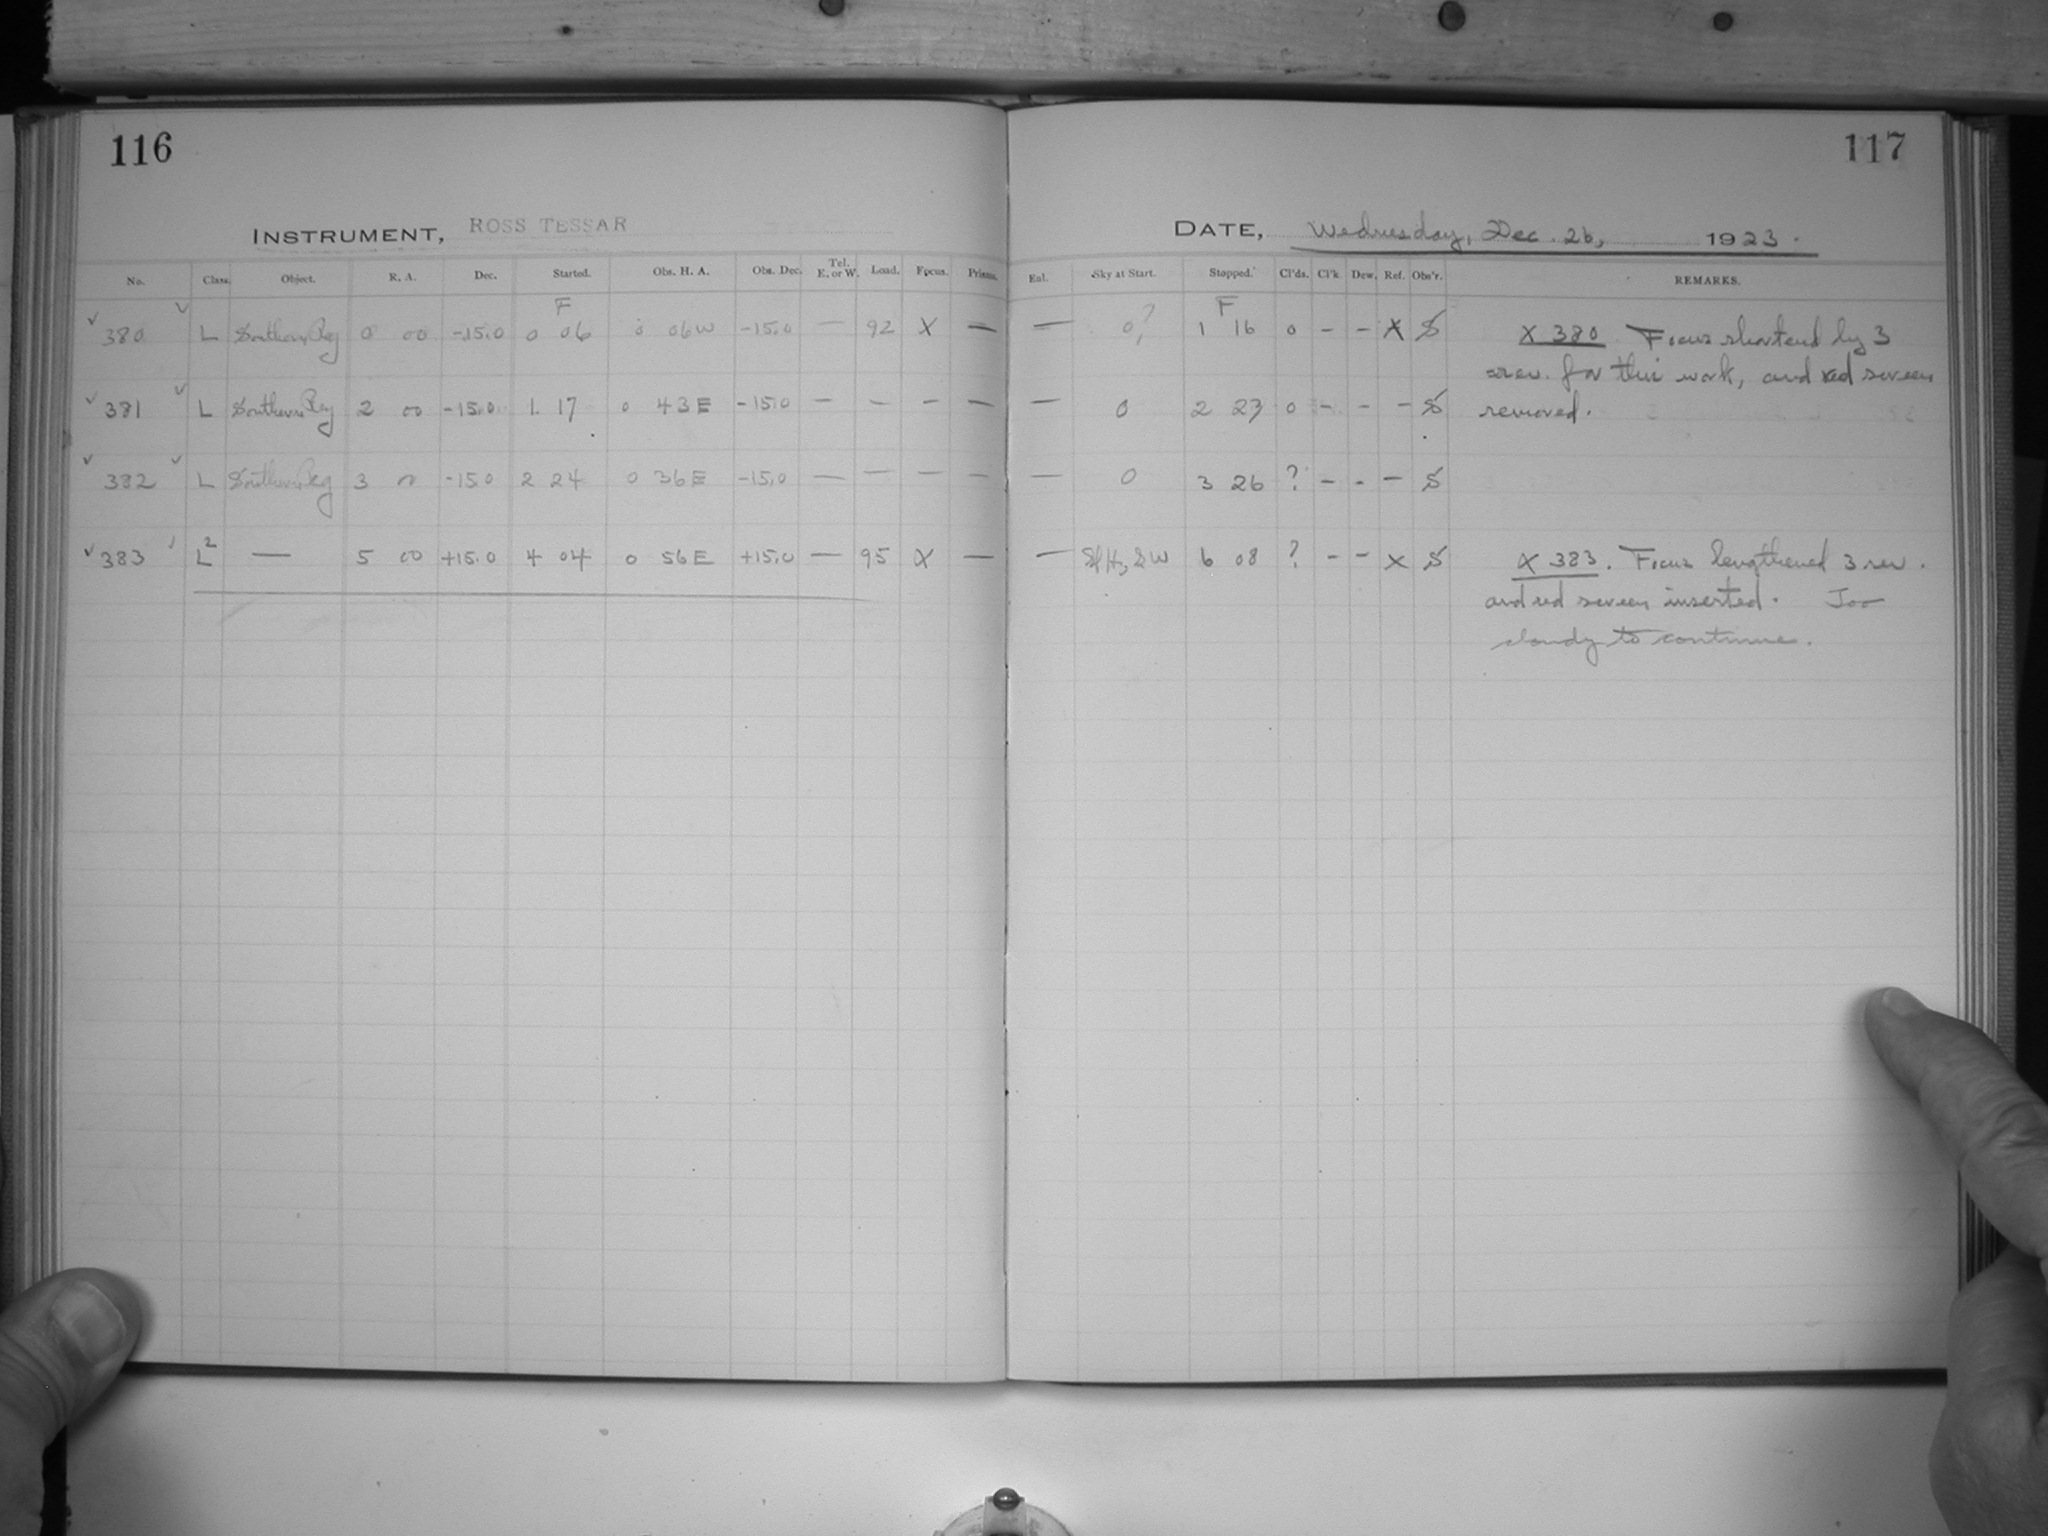 116
117
INSTRUMENT, ROSS TESSAR
DATE, Wednesday, Dec. 26, 1923.
No. Class. Object. R. A. Dec. Started. Obs. H. A. Obs. Dec. Tel. E. or W. Load. Focus. Prisms. Eul. Sky at Start. Stopped. Cl'ds. Cl'k. Dew. Ref. Obs'r. REMARKS.
F F
✓ 380 ✓ L Southern Reg 0 00 -15.0 0 06 0 06W -15.0 — 92 X — — 0,? 1 16 0 - - X S X 380 Focus shortend by 3
rev. for this work, and red screen
✓ 381 ✓ L Southern Reg 2 00 -15.0 1 17 0 43E -15.0 — — — — — 0 2 23 0 - - - S removed.
✓ 382 ✓ L Southern Reg 3 00 -15.0 2 24 0 36E -15.0 — — — — — 0 3 26 ? - - - S
✓ 383 ✓ L2 — 5 00 +15.0 4 04 0 56E +15.0 — 95 X — — 6 08 ? - - X S X 383. Focus lengthened 3 rev.
and red screen inserted. Too
cloudy to continue.